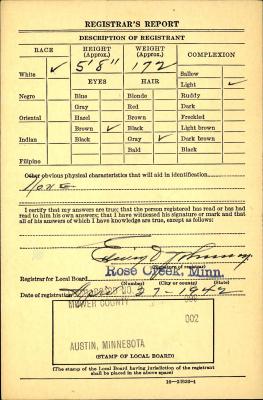 REGISTRAR'S REPORT
DESCRIPTION OF REGISTRANT
RACE HEIGHT (Approx.) WEIGHT (Approx.) COMPLEXION
White ✓ 5' 8" 172 Sallow
EYES HAIR Light ✓
Negro Blue Blonde Ruddy
Gray Red Dark
Oriental Hazel Brown Freckled
Brown ✓ Black Light brown
Indian Black Gray ✓ Dark brown
Bald Black
Filipino
Other obvious physical characteristics that will aid in identification
None
I certify that my answers are true; that the person registered has read or has had
read to him his own answers; that I have witnessed his signature or mark and that
all of his answers of which I have knowledge are true, except as follows:
(Signature of registrar)
Rose Creek, Minn.
Registrar for Local Board
(Number) (City or county) (State)
Date of registration 27 - 1942
MOWER COUNTY
002
AUSTIN, MINNESOTA
(STAMP OF LOCAL BOARD)
(The stamp of the Local Board having jurisdiction of the registrant
shall be placed in the above space)